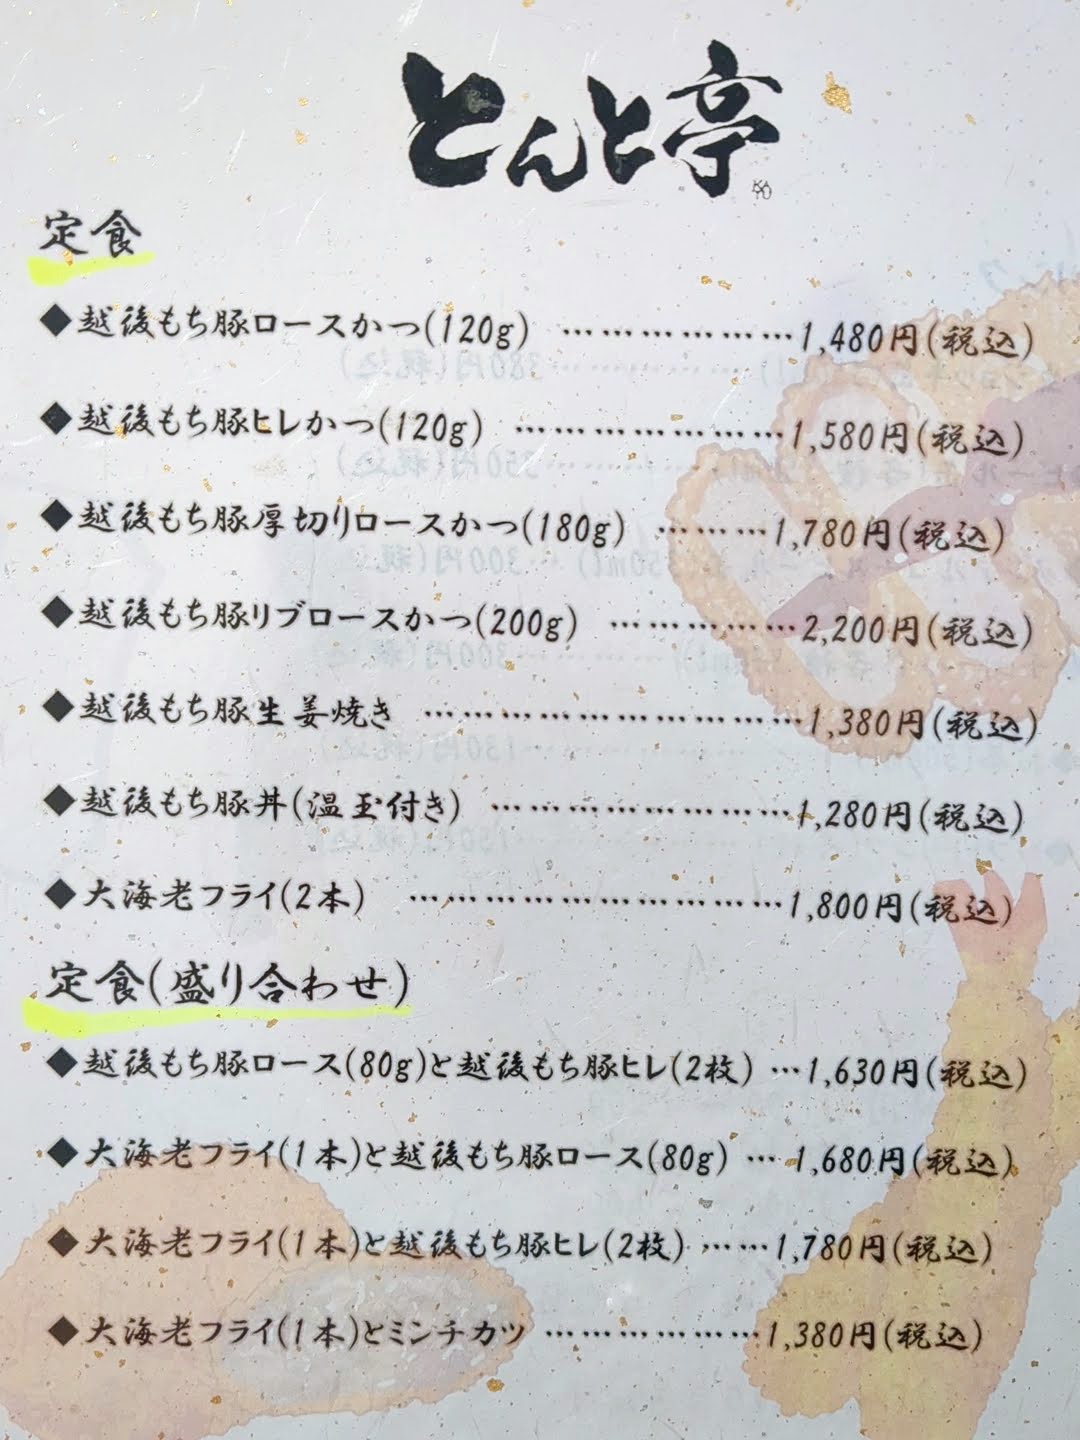 とんと亭
定食
◆越後もち豚ロースかつ(120g) ………………………1,480円(税込)
◆越後もち豚ヒレかつ(120g) …………………………1,580円(税込)
◆越後もち豚厚切りロースかつ(180g) …………1,780円(税込)
◆越後もち豚リブロースかつ(200g) …………………2,200円(税込)
◆越後もち豚生姜焼き ……………………………………1,380円(税込)
◆越後もち豚丼(温玉付き) ……………………………1,280円(税込)
◆大海老フライ(2本) ……………………………………1,800円(税込)
定食(盛り合わせ)
◆越後もち豚ロース(80g)と越後もち豚ヒレ(2枚) …1,630円(税込)
◆大海老フライ(1本)と越後もち豚ロース(80g) … 1,680円(税込)
◆大海老フライ(1本)と越後もち豚ヒレ(2枚) ……1,780円(税込)
◆大海老フライ(1本)とミンチカツ ……………………1,380円(税込)